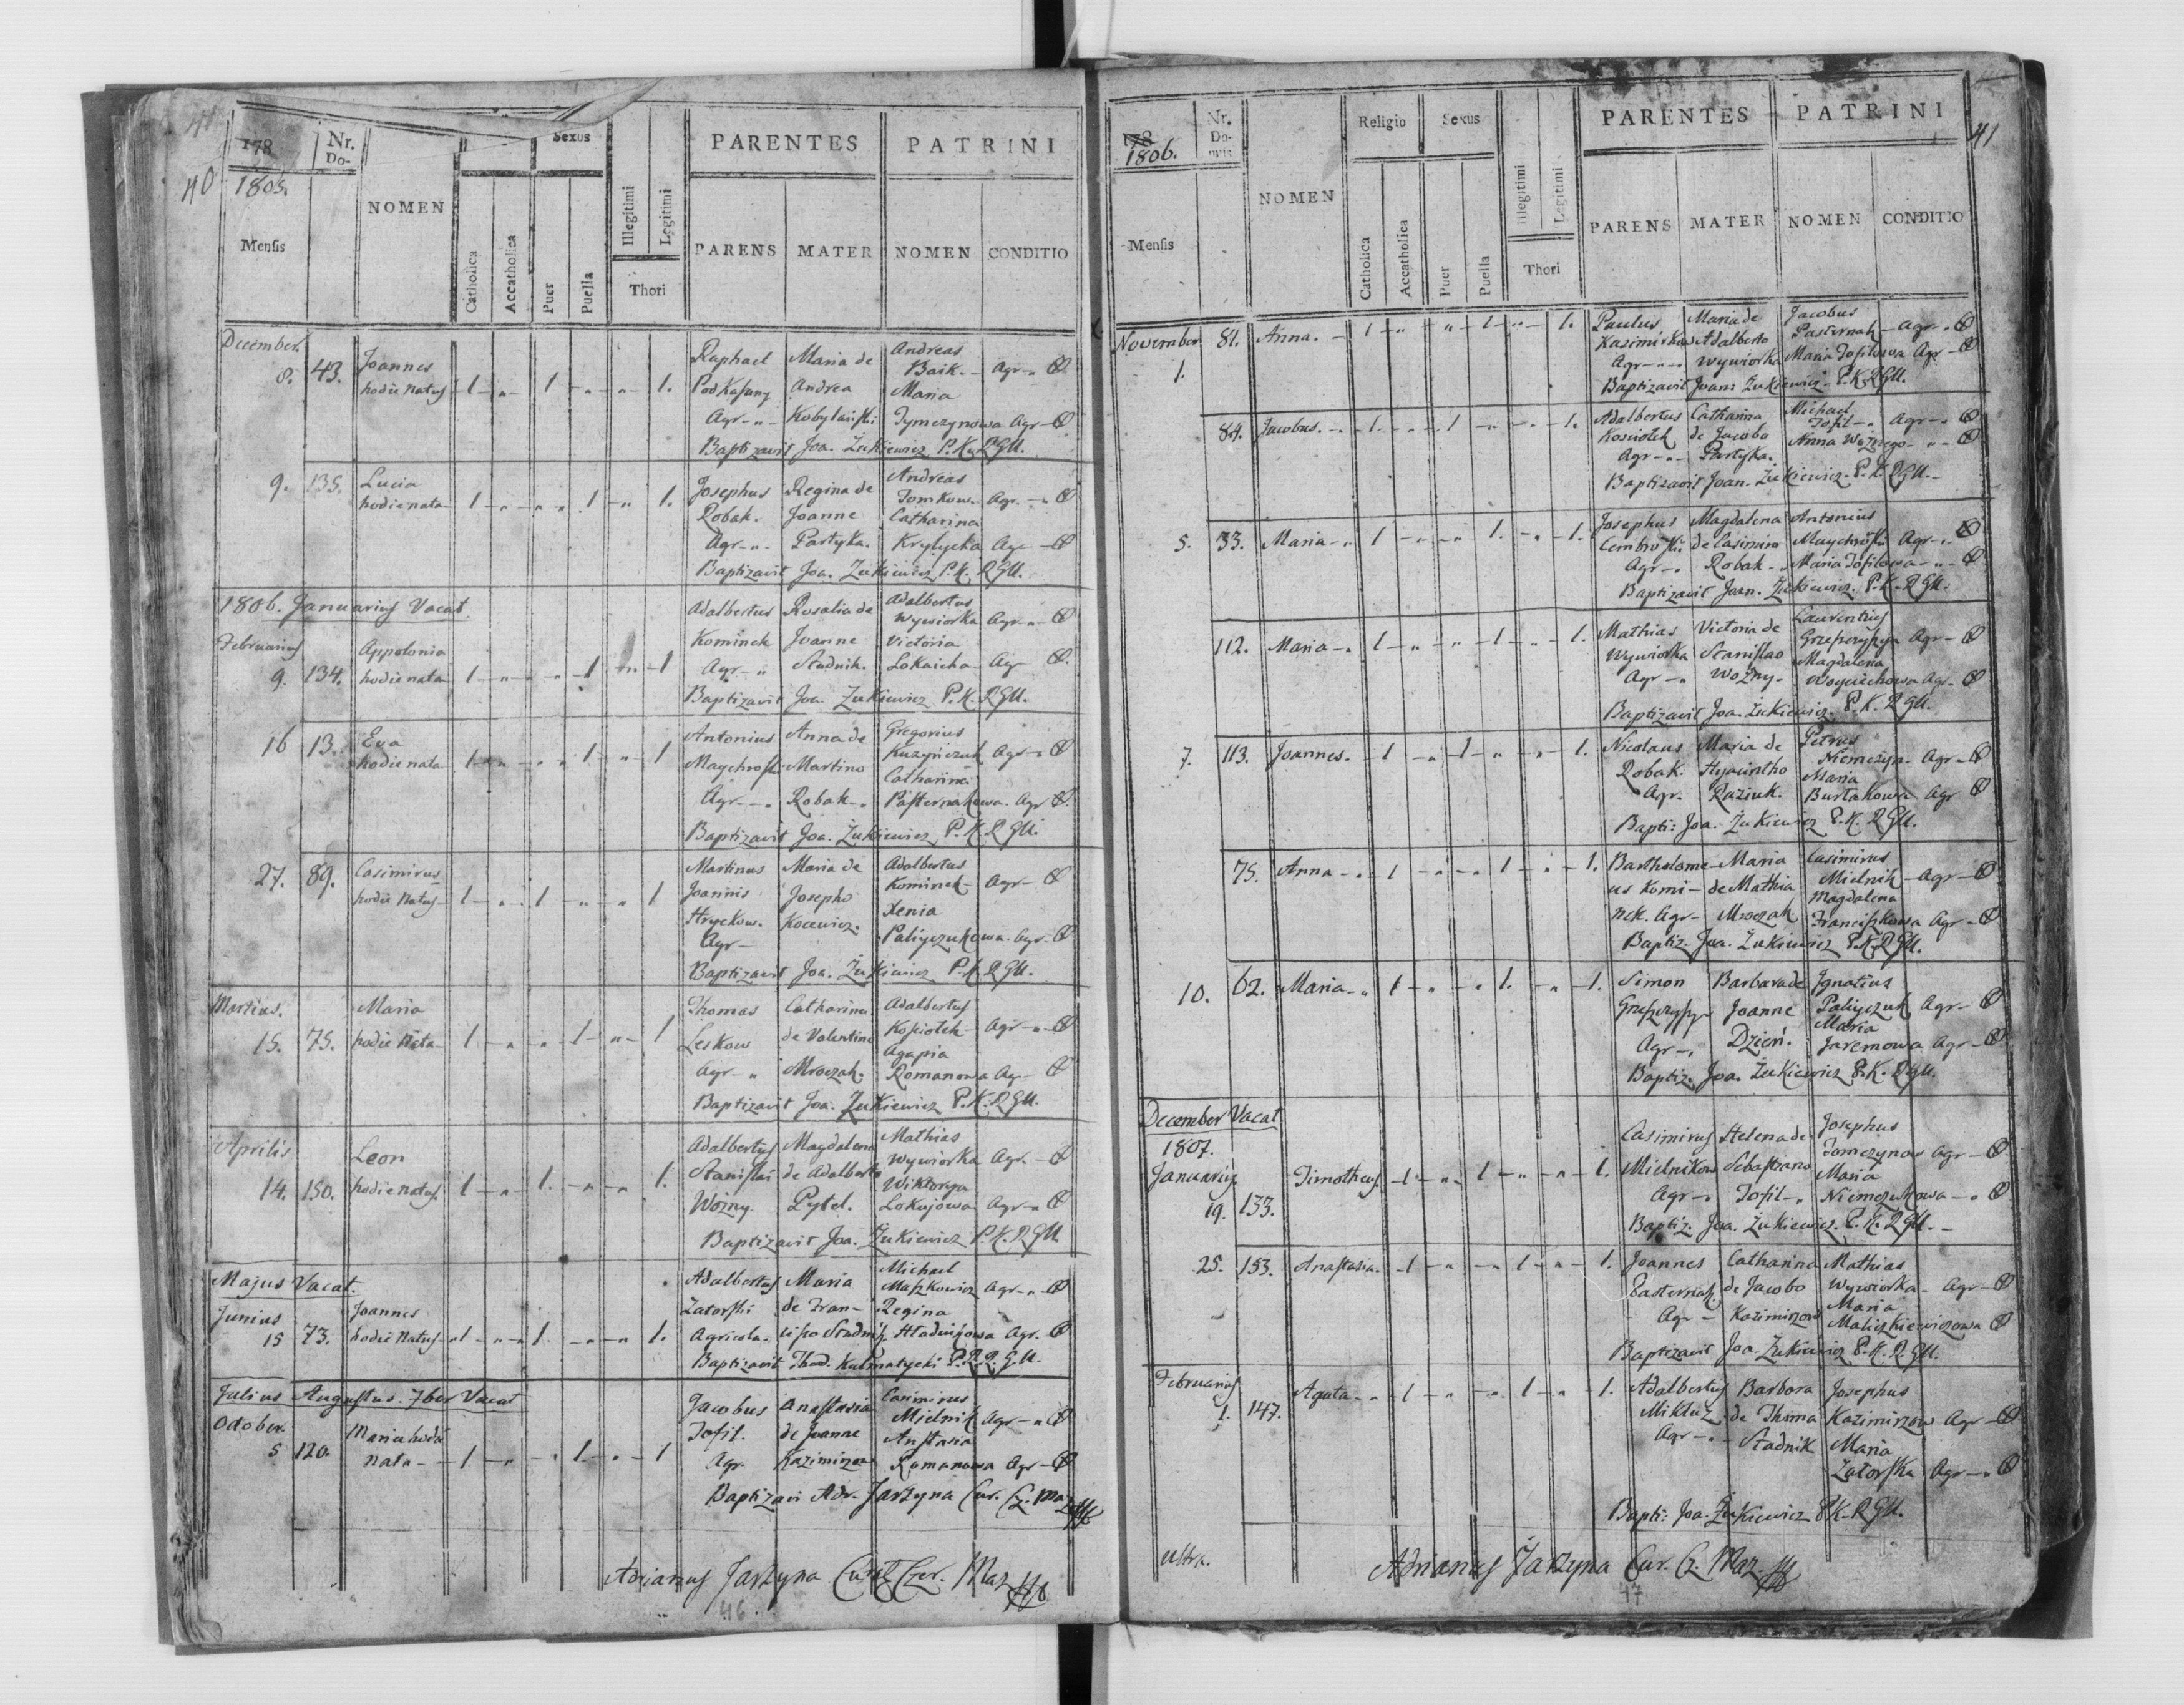 40
178
1805.
Mensis
Nr. Do-
NOMEN
Catholica
Accatholica
Sexus
Puer
Puella
Illegitimi
Legitimi
Thori
PARENTES
PARENS
MATER
PATRINI
NOMEN
CONDITIO
December.
8. 43. Joannes hodie natus 1 - „ - 1 - „ - „ - 1.
Raphael Maria de Andreas
PodKasany Andrea Baik. - Agr -
Agr - „ - Kobylański Maria
Tymczynowa Agr -
Baptizavit Joa. Żukiewicz P. K. R GU.
9. 135. Lucia hodie nata 1 - „ - „ 1 - „ 1.
Josephus Regina de Andreas
Robak. Joanne Tomkow. Agr. -
Agr - „ - Partyka. Catharina
Krylycka Agr -
Baptizavit Joa. Żukiewicz P. K. R GU.
1806. Januarius Vacat.
Februarius
9. 134. Appolonia hodie nata 1 - „ - „ - 1 - „ - 1
Adalbertus Rosalia de Adalbertus
Kominek Joanne Wywiorka Agr -
Agr - „ Stadnik. Victoria
Lokaicha - Agr
Baptizavit Joa. Żukiewicz P. K. R GU.
16 13. Eva hodie nata 1 - „ - „ 1 - „ - 1
Antonius Anna de Gregorius
Maychroski Martino Kuzyńczuk Agr -
Agr - „ Robak - „ Catharina
Pasternakowa. Agr
Baptizavit Joa. Żukiewicz P. K. R GU.
27. 89. Casimirus hodie natus 1 - „ - 1 - „ - „ 1
Martinus Maria de Adalbertus
Joannis Josepho Kominek - Agr -
Hryckow. Kocewicz. Xenia
Agr - Paliyczukowa. Agr -
Baptizavit Joa. Żukiewicz P. K. R GU.
Martius.
15. 75. Maria hodie nata 1. - „ - „ 1 - „ - 1
Thomas Catharina Adalbertus
Leskow de Valentino Kosiołek - Agr -
Agr - „ Mroczak. Agapia
Romanowa Agr -
Baptizavit Joa. Żukiewicz P. K. R GU.
Aprilis
14. 150. Leon hodie natus. 1 - „ - 1. - „ - „ 1.
Adalbertus Magdalena Mathias
Stanislai de Adalberto Wywiorka Agr. -
Woźny. Pytel. Wiktorya
Lokajowa Agr -
Baptizavit Joa. Żukiewicz P. K. R GU.
Majus Vacat.
Junius
15 73. Joannes hodie natus 1 - „ - 1. - „ - „ 1.
Adalbertus Maria Michael
Zatorski de Fran- Maszkowicz Agr -
Agricola. cisco Stadnik Regina
Hładuńowa Agr.
Baptizavit Thad. Kulmatycki P. R. R. G. U.
Julius Augustus. 7ber Vacat
October.
5 120. Maria hodie nata - 1 - „ - „ 1 - „ - 1
Jacobus Anastasia Casimirus
Tofil. de Joanne Mielnik Agr -
Agr. Kazimirzow Anstasia
Romanowa Agr -
Baptizavi Adr. Jarzyna Cur. Cz. Maz.
Adrianus Jarzyna Curat. Czer. Maz.
46
41
178
1806.
Mensis
Nr. Domus
NOMEN
Religio
Catholica
Accatholica
Sexus
Puer
Puella
Illegitimi
Legitimi
Thori
PARENTES
PARENS
MATER
PATRINI
NOMEN
CONDITIO
November
1. 81. Anna. - 1 - „ „ - 1 - „ - 1.
Paulus Maria de Jacobus
Kazimirkow Adalberto Pasternak - Agr -
Agr - „ - Wywiorka Maria Tofilowa Agr -
Baptizavit Joan: Żukiewicz. P. K. R GU.
84. Jacobus. - 1. - „ - 1 - „ - 1.
Adalbertus Catharina Michael
Kosiołek de Jacobo Tofil - „ Agr -
Agr - „ - Partyka. Anna Woźnego - „ -
Baptizavit Joan. Żukiewicz. P. K. R GU. -
5. 33. Maria - „ 1 - „ - „ 1. - „ - 1.
Josephus Magdalena Antonius
Cembroski de Casimiro Maychroski Agr -
Agr - „ Robak - „ Maria Tofilowa - „ -
Baptizavit Joan. Żukiewicz. P. K. R GU.
112. Maria - „ 1 - „ - „ - 1 - „ - 1.
Mathias Victoria de Laurentius
Wywiorka Stanislao Grzeszczyszyn Agr -
Agr - „ Woźny - Magdalena
Woyciechowa Agr -
Baptizavit Joa. Żukiewicz. P. K. R GU.
7. 113. Joannes. - 1 - „ - 1 - „ - „ - 1.
Nicolaus Maria de Petrus
Robak. Hyacintho Niemczyn. Agr -
Agr. Raziuk. Maria
Burłakowa Agr
Bapti: Joa. Żukiewicz P. K. R GU.
75. Anna - „ 1 - „ - „ 1 - „ - 1.
Bartholome- Maria Casimirus
us Komi- de Mathia Mielnik - Agr -
nek. Agr - Mroczak Magdalena
Franciszkowa Agr -
Baptiz. Joa. Żukiewicz P. K. R GU.
10. 62. Maria - „ 1 - „ - „ 1. - „ - 1.
Simon Barbara de Ignatius
Grzeszczyszyn Joanne Paliyczuk Agr -
Agr - „ Dzień. Maria
Jaremowa Agr -
Baptiz. Joa. Żukiewicz P. K. R GU.
December Vacat
1807.
Januarius
19. 133. Timotheus. - 1 - „ - 1 - „ - „ - 1.
Casimirus Helena de Josephus
Mielnikow Sebastiano Tomczynow Agr -
Agr - „ Tofil - „ Maria
Niemczukowa - „
Baptiz. Joa. Żukiewicz. P. K. R GU. -
25. 153. Anastasia. - 1 - „ - „ 1 - „ - 1.
Joannes Catharina Mathias
Pasternak. de Jacobo Wywiorka - Agr -
Agr - Kazimirzow Maria
Maliszkiewiczowa
Baptizavit Joa. Żukiewicz P. K. R. GU.
Februarius
1. 147. Agata - „ 1 - „ - „ 1 - „ - 1.
Adalbertus Barbora Josephus
Mikluz de Thoma Kazimirzow Agr -
Agr - „ Stadnik Maria
Zatorska Agr -
Bapti: Joa. Żukiewicz P. K. R GU.
ultra.
Adrianus Jarzyna Cur. Cz. Maz.
47